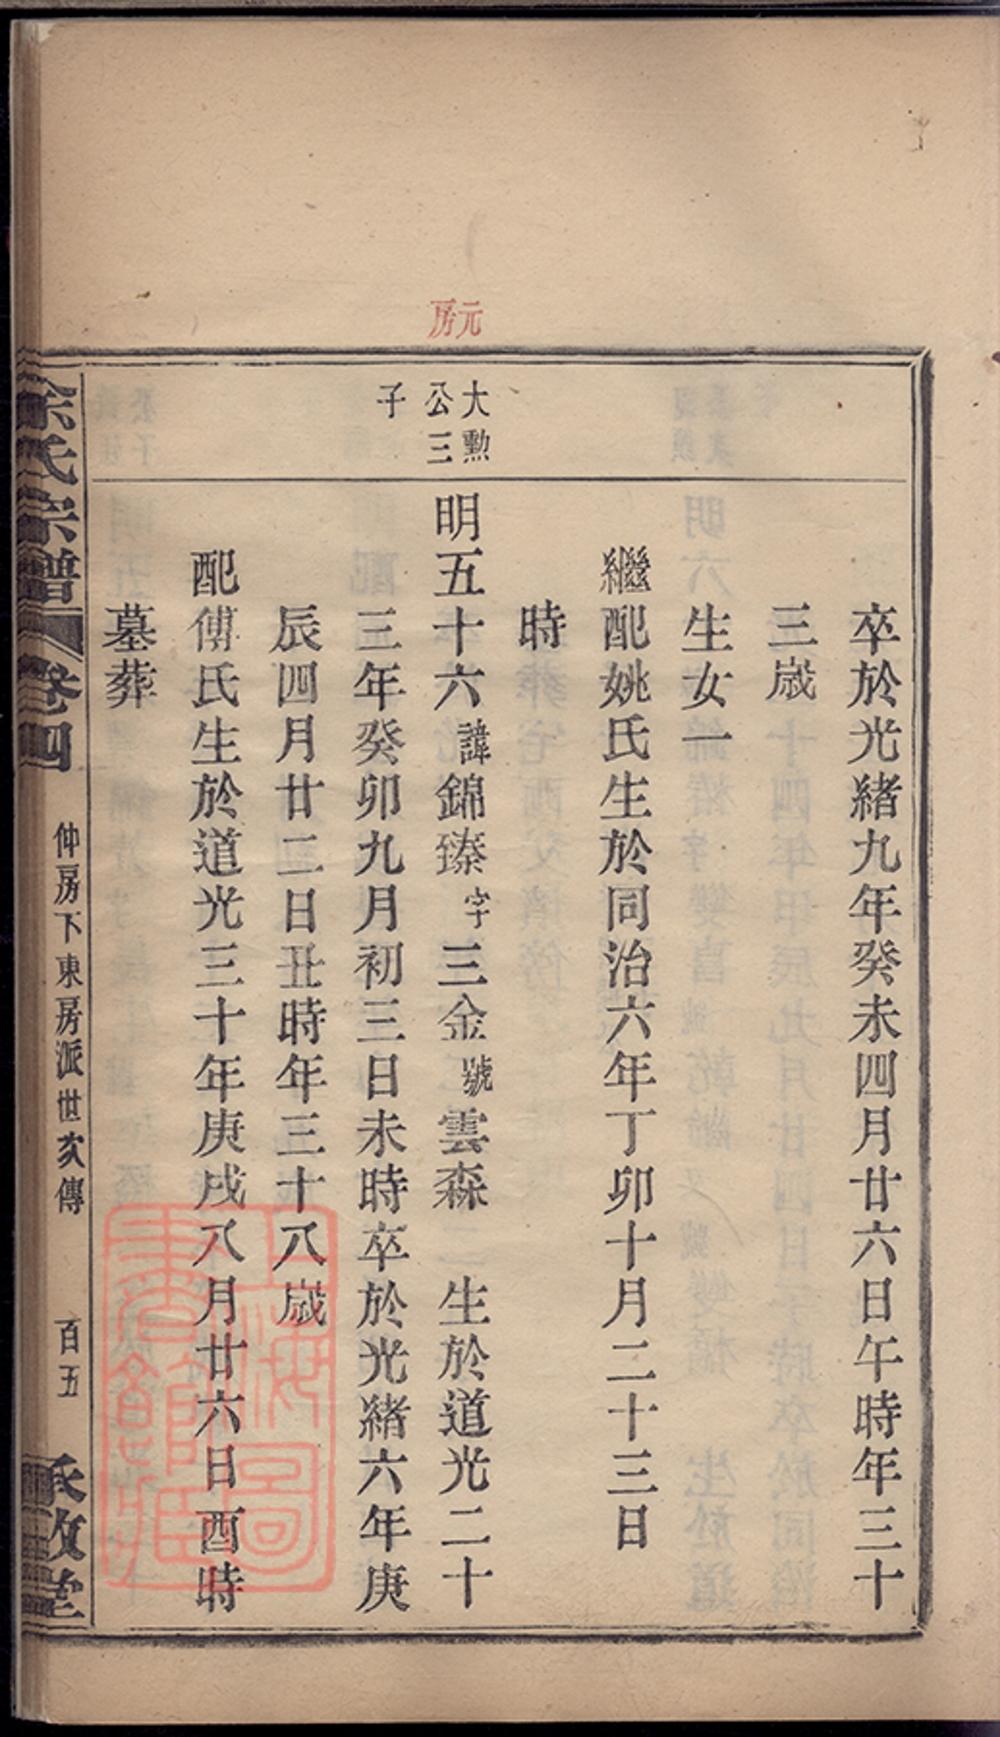 元
房
卒於光緒九年癸未四月廿六日午時年三十
三歲
生女一
繼配姚氏生於同治六年丁卯十月二十三日
時
大勲
公三
子
明五十六諱錦臻字三金號雲森 生於道光二十
三年癸卯九月初三日未時卒於光緒六年庚
辰四月廿二日丑時年三十八歲
配傅氏生於道光三十年庚戌八月廿六日酉時
墓葬
氏宗譜
卷四
仲房下東房派世次傳
百五
承啟堂